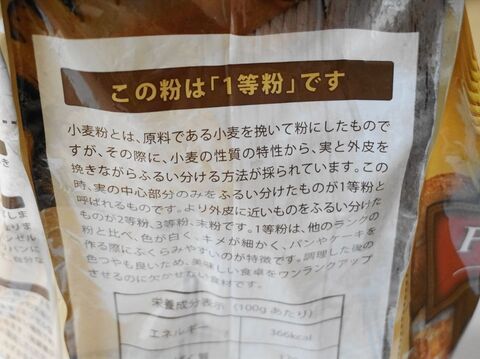 この粉は「1等粉」です
小麦粉とは、原料である小麦を挽いて粉にしたもので
すが、その際に、小麦の性質の特性から、実と外皮を
挽きながらふるい分ける方法が採られています。この
時、実の中心部分のみをふるい分けたものが1等粉と
呼ばれるものです。より外皮に近いものをふるい分けた
ものが2等粉、3等粉、末粉です。1等粉は、他のランクの
粉と比べ、色が白く、キメが細かく、パンやケーキを
作る際にふくらみやすいのが特徴です。調理した後の
色つやも良いため、美味しい食卓をワンランクアップ
させるのに欠かせない食材です。
栄養成分表示 (100gあたり)
エネルギー 366kcal